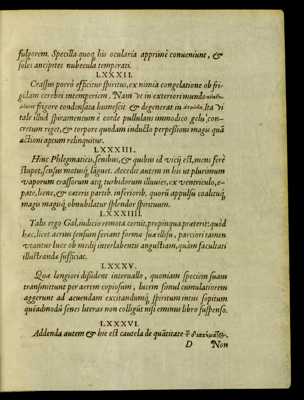 fulgorem. Specilla quoq; his ocularia apprimè conueniunt, &
soles ancipites nubecula temperati.
LXXXII.
Crassus porrò efficitur spiritus, ex nimia congelatione ob fri-
gidam cerebri intemperiem. Nam vt in exteriori mundo
aer frigore condensata humescit & degenerat in Ita vi
tale illud spiramentum è corde pullulans immodico gelu con-
cretum reget, & torpore quodam inducto perpessioni magis quã
actioni aptum relinquitur.
LXXXIII.
Hinc Phlegmaticis, senibus, & quibus id vicij est, mens ferè
stupet, sensus motusq; languet. Accedit autem in his vt plurimum
vaporum crassorum atq; turbidorum illuuies, ex ventriculo, e-
pate, liene, & cæteris partib. inferiorib. quorũ appulsu coaleciuq;
magis magisq; obnubilatur splendor spirituum.
LXXXIIII.
Talis ergo Gal. iudicio remota cernit, propinqua præterit: quòd
hæc, licet acrius sensum feriant forma suæ illisu, parciori tamen
vtantur luce ob medij interlabentis angustiam, quàm facultati
illustrandæ sufficiat.
LXXXV.
Quæ longiori dissident interuallo, quoniam speciem suam
transmittunt per aerem copiosum, lucem simul cumulatiorem
aggerunt ad acuendam excitandumq; spiritum intus sopitum
quẽadmodũ senes literas non colligũt nisi eminus libro suspenso.
LXXXVI.
Addenda autem & hoc est cautela de quãtitate
D Non